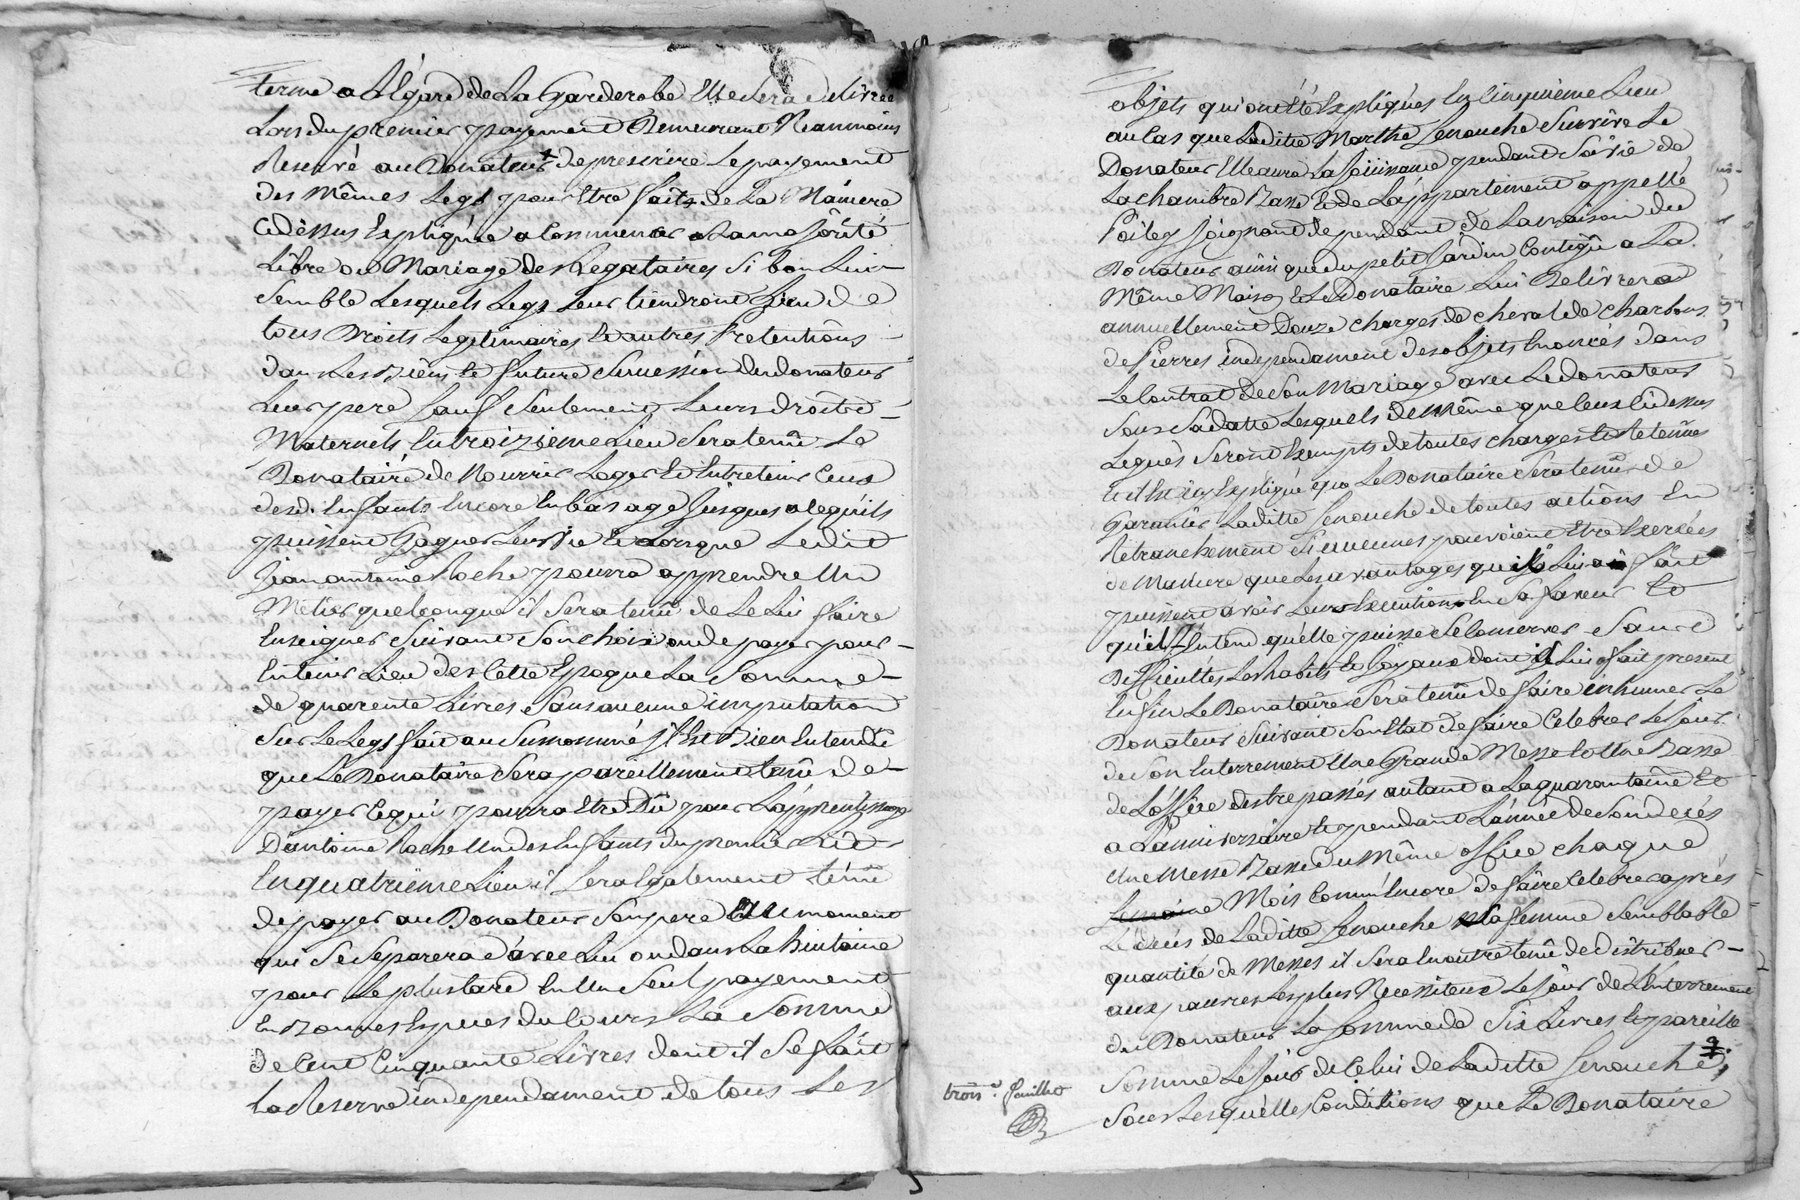 terme a Légard de La Garderobe Elle sera Delivrée
Lors du premier payement Demeurant Neanmoins
Reservé au Donateur de prescrire Le payement
des Mêmes Legs pour Etre faits de La Maniere
Cydessus Expliquée a Commencer a La majorité
Libre ou Mariage des Legataires si bon Lui
Semble Lesquels Legs Leur tiendront Lieu de
tous Droits Legitimaires Et autres Pretentions
dans Les Biens Et future Succession du donateur
Leur pere sauf Seulement Leurs droits
Maternels En troizieme Lieu Sera tenû Le
Donataire de Nourrir Loger Et Entretenir Ceux
desd. Enfants Encore En bas age Jusques a Ce qu'ils
puissent Gagner Leur vie Et Lorsque Ledit
Jean antoine Roche pourra apprendre Un
Métier quelconque il Sera tenû de Le Lui faire
Enseigner Suivant Son Choix ou de payer pour
En tenir Lieu des Cette Epoque La Somme
de quarente Livres Sans aucune imputation
Sur Le Legs fait au Surnommé Il Est Bien Entendû
que Le Donataire Sera pareillement tenû de
payer Ce qui pourra Etre Dû pour L'apprentissage
D'antoine Roche Un des Enfants du premier Lid
En quatriéme Lieu il Sera Egalement ténû
de payer au Donateur Son pere Au moment
qui Se Separera d'avec Lui ou dans La huitaine
pour Le plus tard En Un Seul payement
En Bonnes Especes du Cours La Somme
de Cent Cinquante Livres dont il Se fait
La Reserve independament de tous Les
objets qui ont été Expliqués En Cinquieme Lieu
au Cas que Laditte Marthe Genouche Survive Le
Donateur Elle aura La Joüissance pendant Sa vie de
La chambre Basse Et de L'appartement appellé
Joignant dependant de La maison du
Donateur ainsi que du petit Jardin Contigû a La
Même Maison Et Le Donataire Lui Delivrera
annuellement Douze charges de cheval de charbons
de Pierres independament des objets Enoncés dans
Le Contrat de Son Mariage avec Le donateur
Sous Sa datte Lesquels de Même que Ceux Cidessus
Legués Seront Exempts de toutes charges Et Retenûes
Et il Est icy Expliqué que Le Donataire Sera tenû de
Garantir Laditte Genouche de toutes actions En
Retranchement Si aucunes pouvoient Etre Exercées
de Maniere que Les avantages qu'il Lui a fait
puissent avoir Leur Execution En Sa faveur Et
qu'il Entend qu'elle puisse Se Conserver Sans
Difficultés Les habits Et Joyaux dont il Lui a fait present
Enfin Le Donataire Sera tenû de faire inhumer Le
Donateur Suivant Son Etat de faire Celebrer Le Jour
de Son Enterrement Une Grande Messe Et Une Basse
de L'office des trepassés autant a La quarantaine Et
a L'anniversaire Et pendant L'année de Son decés
Une Messe Basse du Même office chaque
Mois Comme Encore de faire Celebrer aprés
Le decés de Laditte Genouche Sa femme Semblable
quantité de Messes il Sera En outre tenû de distribuer
aux pauvres Les plus Necessiteux Le Jour de L'Enterrement
du Donateur La Somme de Six Livres Et pareille
Somme Le Jour de Celui de Laditte Genouche
trois.e feuillet
Sous Lesquelles Conditions que Le Donataire